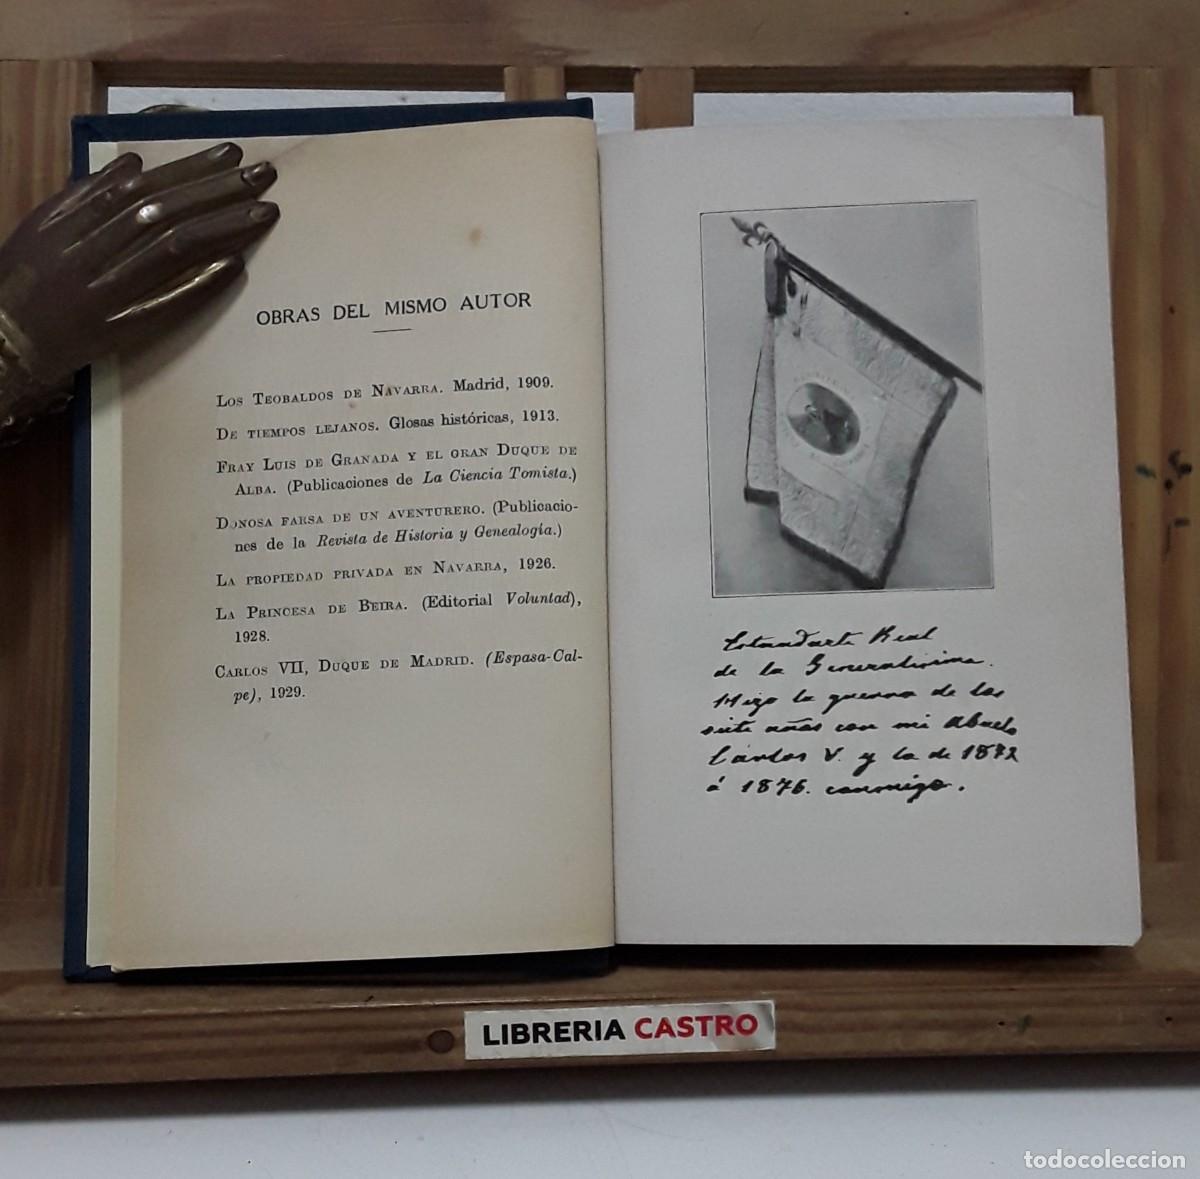 OBRAS DEL MISMO AUTOR
Los Teobaldos de Navarra. Madrid, 1909.
De tiempos lejanos. Glosas históricas, 1913.
Fray Luis de Granada y el gran Duque de
Alba. (Publicaciones de La Ciencia Tomista.)
Donosa farsa de un aventurero. (Publicacio-
nes de la Revista de Historia y Genealogía.)
La propiedad privada en Navarra, 1926.
La Princesa de Beira. (Editorial Voluntad),
1928.
Carlos VII, Duque de Madrid. (Espasa-Cal-
pe), 1929.
Estandarte Real
de la Generalísima.
Hizo la guerra de los
siete años con mi Abuelo
Cárlos V. y la de 1872
á 1876. conmigo.
LIBRERIA CASTRO
todocoleccion